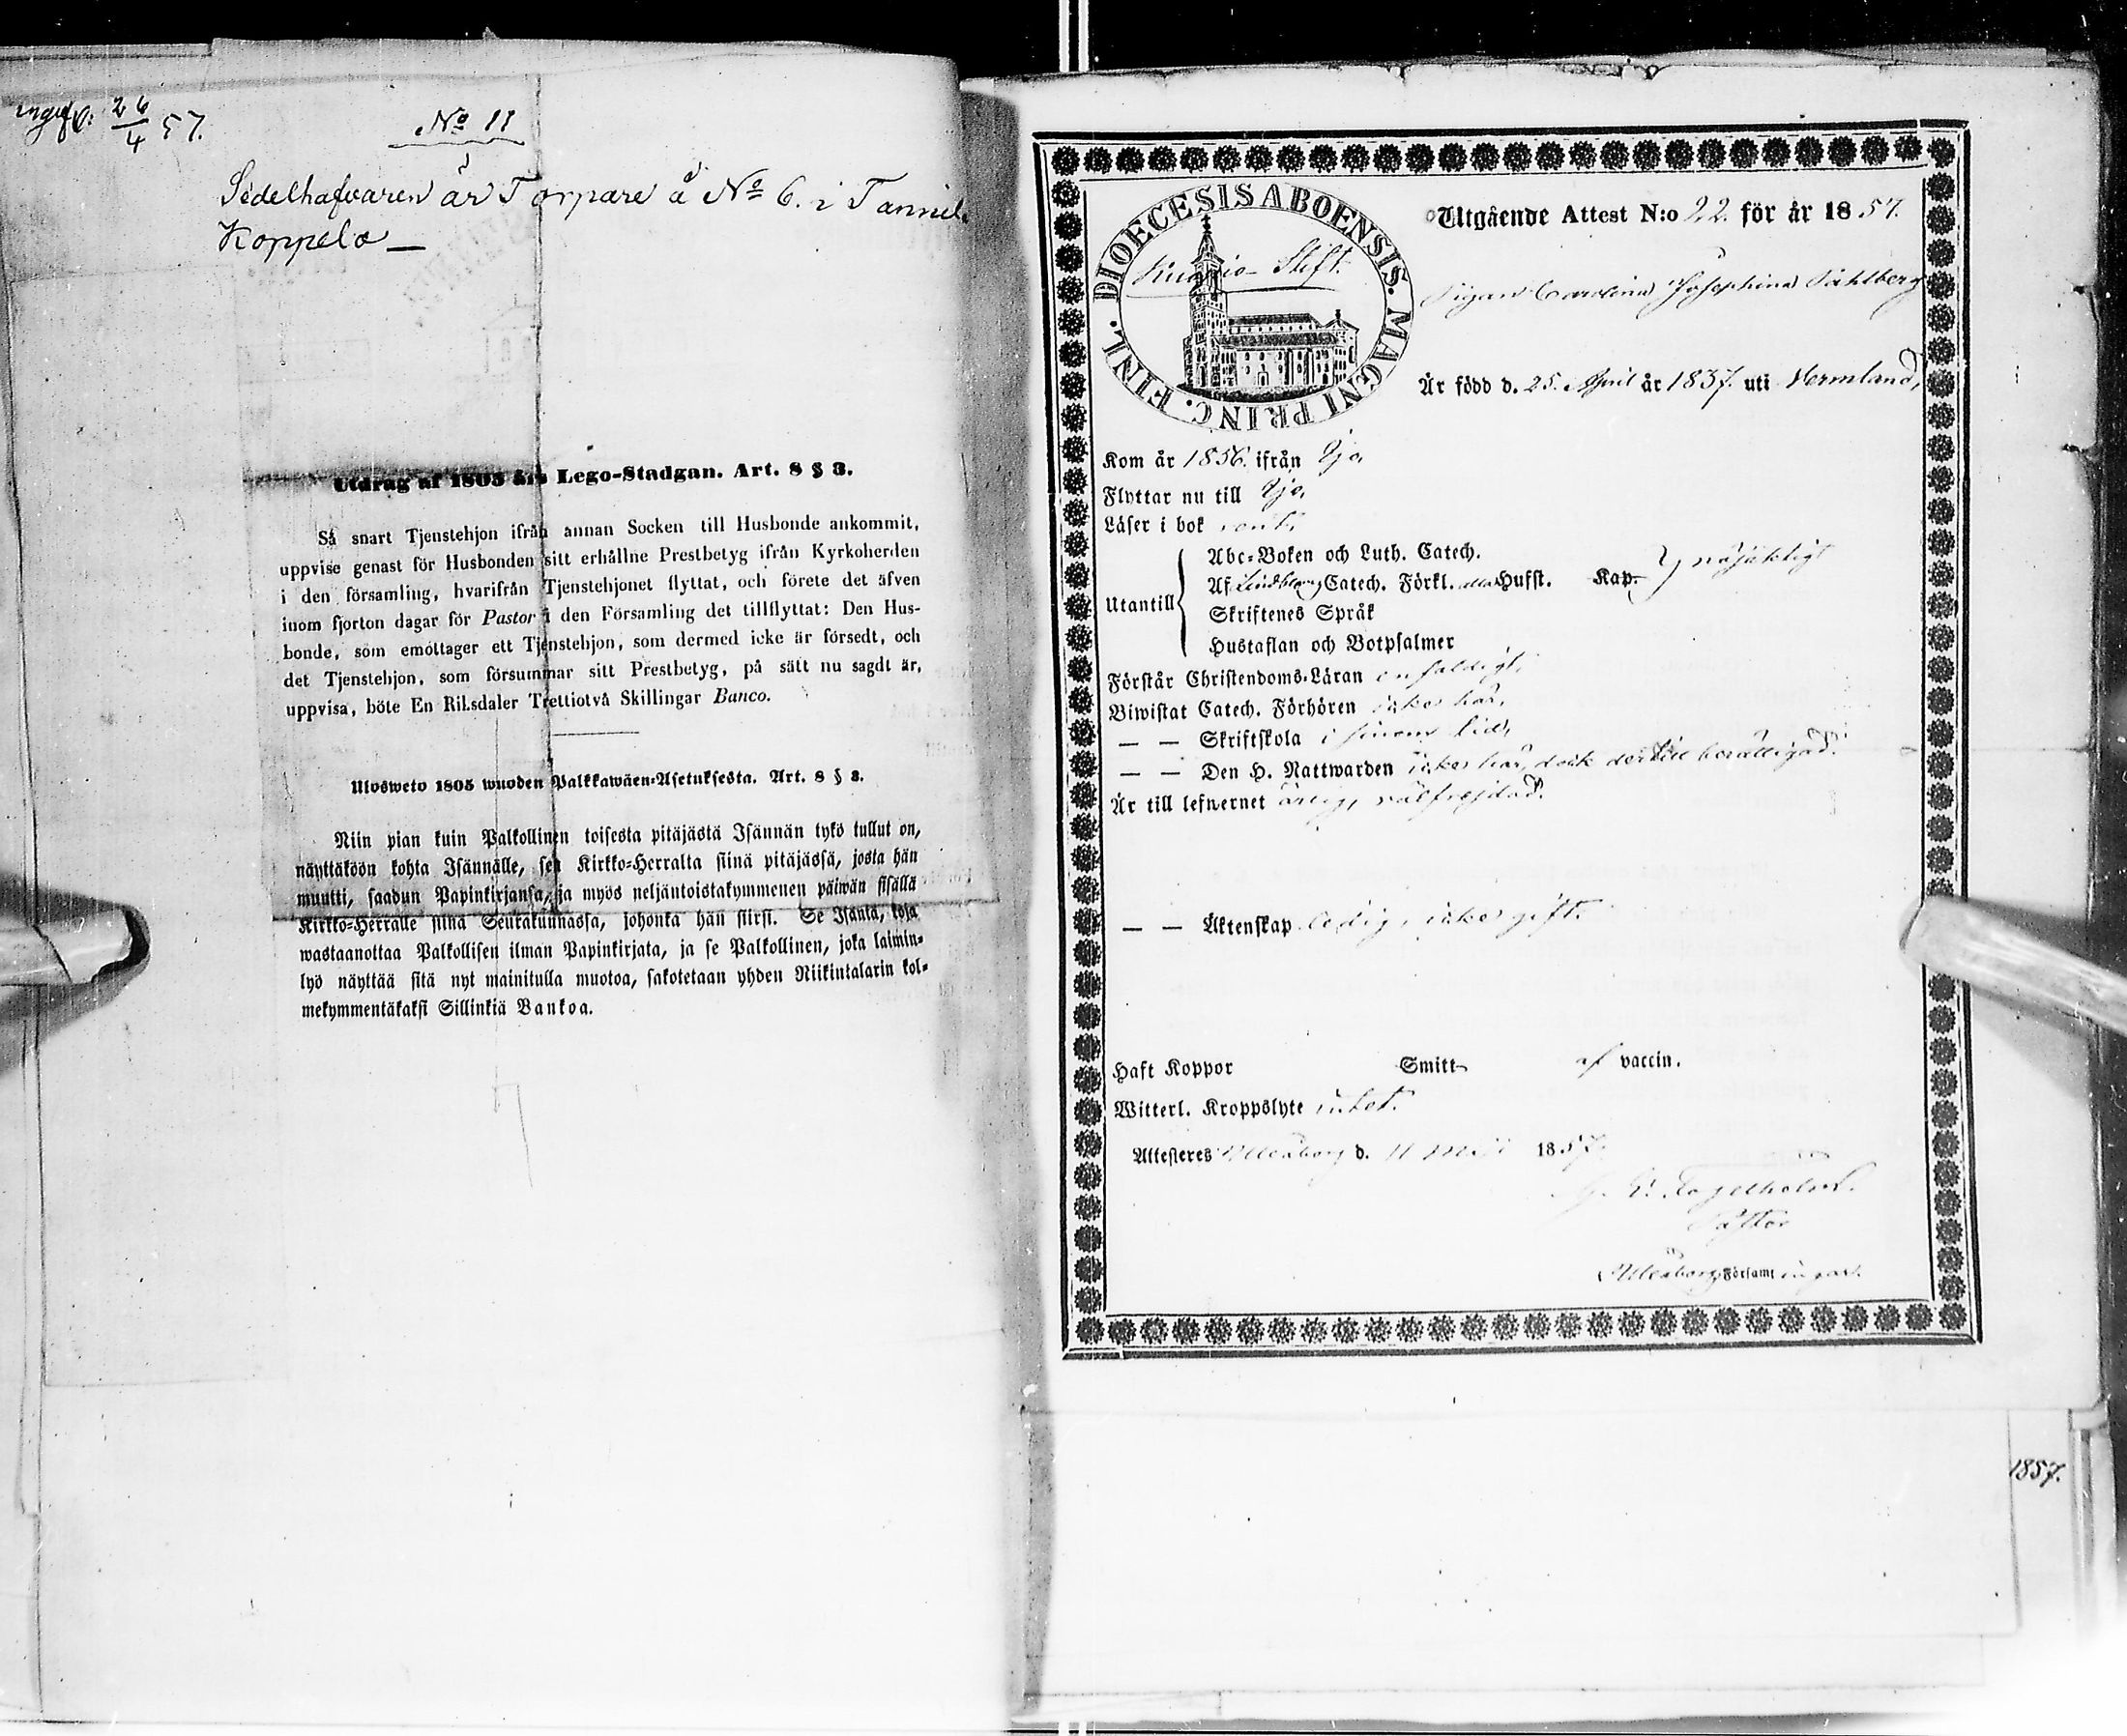 ingif: 26/4 57.
No 11
Sedelhafvaren är Torpare å No 6. i Tannil
Koppelo —
Utdrag af 1805 års Lego-Stadgan. Art. 8 § 3.
Så snart Tjenstehjon ifrån annan Socken till Husbonde ankommit,
uppvise genast för Husbonden sitt erhållne Prestbetyg ifrån Kyrkoherden
i den församling, hvarifrån Tjenstehjonet flyttat, och förete det äfven
inom fjorton dagar för Pastor i den Församling det tillflyttat: Den Hus-
bonde, som emottager ett Tjenstehjon, som dermed icke är försedt, och
det Tjenstehjon, som försummar sitt Prestbetyg, på sätt nu sagdt är,
uppvisa, böte En Riksdaler Trettiotvå Skillingar Banco.
Ulosweto 1805 wuoden Palkkawäen-Asetuksesta. Art. 8 § 3.
Niin pian kuin Palkollinen toisesta pitäjästä Isännän tykö tullut on,
näyttäköön kohta Isännälle, sen Kirkko-Herralta siinä pitäjässä, josta hän
muutti, saadun Papinkirjansa, ja myös neljäntoistakymmenen päiwän sisällä
Kirkko-Herralle siinä Seurakunnassa, johonka hän siirsi. Se Isäntä, joka
wastaanottaa Palkollisen ilman Papinkirjata, ja se Palkollinen, joka laimin-
lyö näyttää sitä nyt mainitulla muotoa, sakotetaan yhden Riikintalarin kol-
mekymmentäkaksi Sillinkiä Bankoa.
DIOECESIS ABOENSIS. MAGNI PRINC. FINL.
Kuopio Stift.
Utgående Attest N:o 22. för år 1857.
Pigan Carolina Josephina Påhlberg
Är född d. 25. April år 1837. uti Vermland,
Kom år 1856. ifrån Ijo,
Flyttar nu till Ijo,
Läser i bok rent,
Utantill
Abc-Boken och Luth. Catech.
Af Lindbloms Catech. Förkl. Husft. Kap. nöjaktigt
Skriftenes Språk
Hustaflan och Botpsalmer
Förstår Christendoms-Läran enfaldigt,
Biwistat Catech. Förhören icke här,
— — Skriftskola i sinom tid,
— — Den H. Nattwarden icke här, dock dertill berättigad.
Är till lefwernet ärlig, välfrejdad.
— — Äktenskap ledig, icke gift.
Haft Koppor Smitt af vaccin.
Witterl. Kroppslyte intet.
Attesteras Uleåborg d. 11 1857.
Pastor
Uleåborgs Församlingar.
1857.